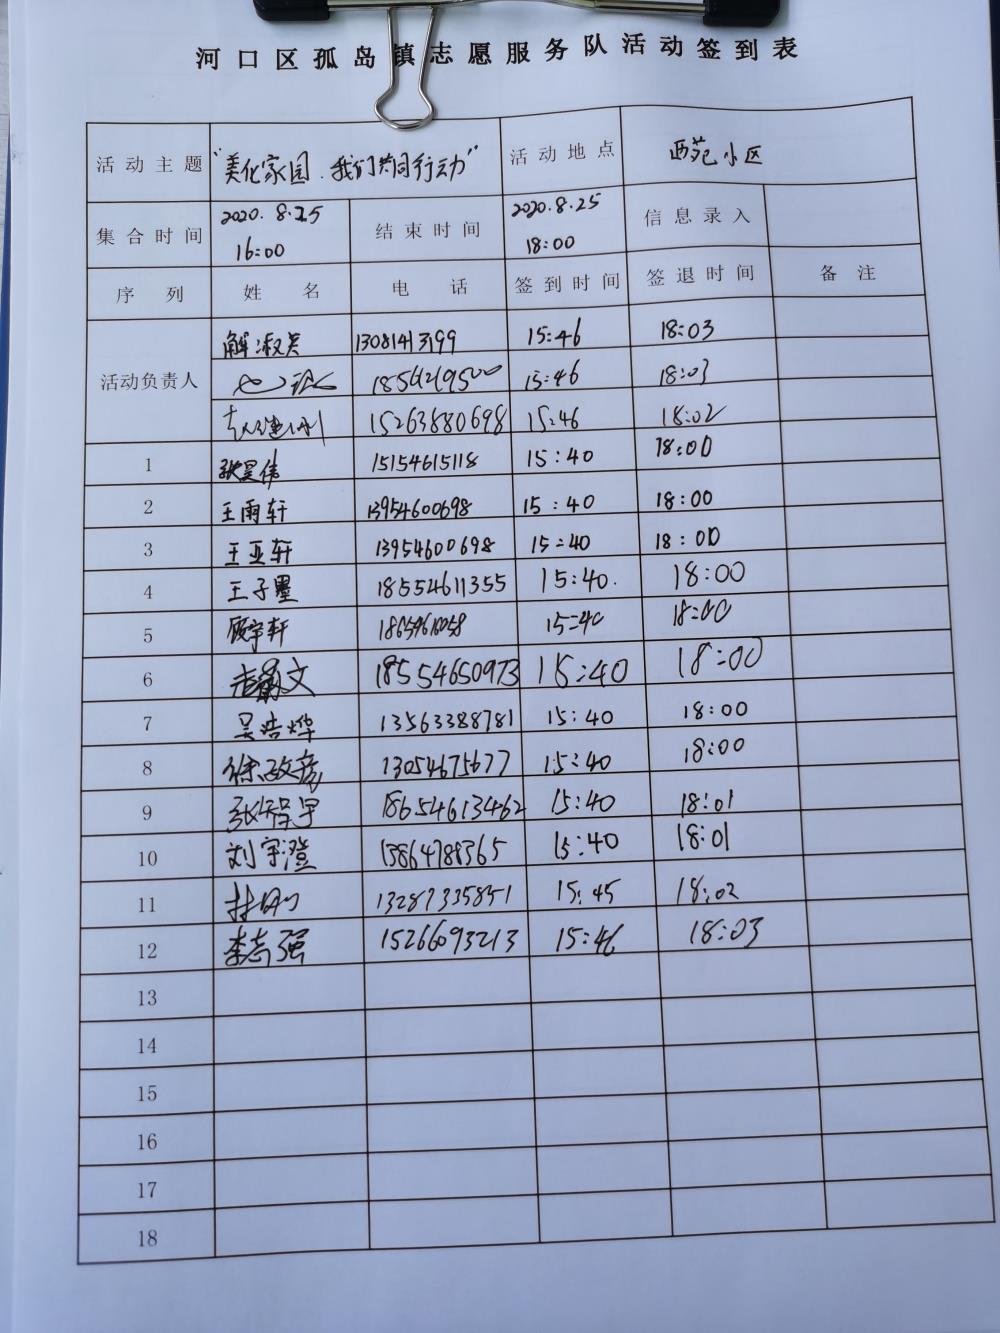 河口区孤岛镇志愿服务队活动签到表
活动主题 "美化家园.我们共同行动" 活动地点 西苑小区
集合时间 2020.8.25 16:00 结束时间 2020.8.25 18:00 信息录入
序列 姓名 电话 签到时间 签退时间 备注
活动负责人 解淑 13081413199 15:46 18:03
15:46 18:03
15263880698 15:46 18:02
1 张昊伟 15154615118 15:40 18:00
2 王雨轩 13954600698 15:40 18:00
3 王亚轩 13954600698 15:40 18:00
4 王子墨 18554611355 15:40. 18:00
5 宇轩 15:40 18:00
6 文 18554650973 15:40 18:00
7 吴浩烨 13563388781 15:40 18:00
8 徐政彦 13054675677 15:40 18:00
9 张智宇 18654613462 15:40 18:01
10 刘宇澄 13864788365 15:40 18:01
11 13287335851 15:45 18:02
12 李志强 15266093213 15:46 18:03
13
14
15
16
17
18